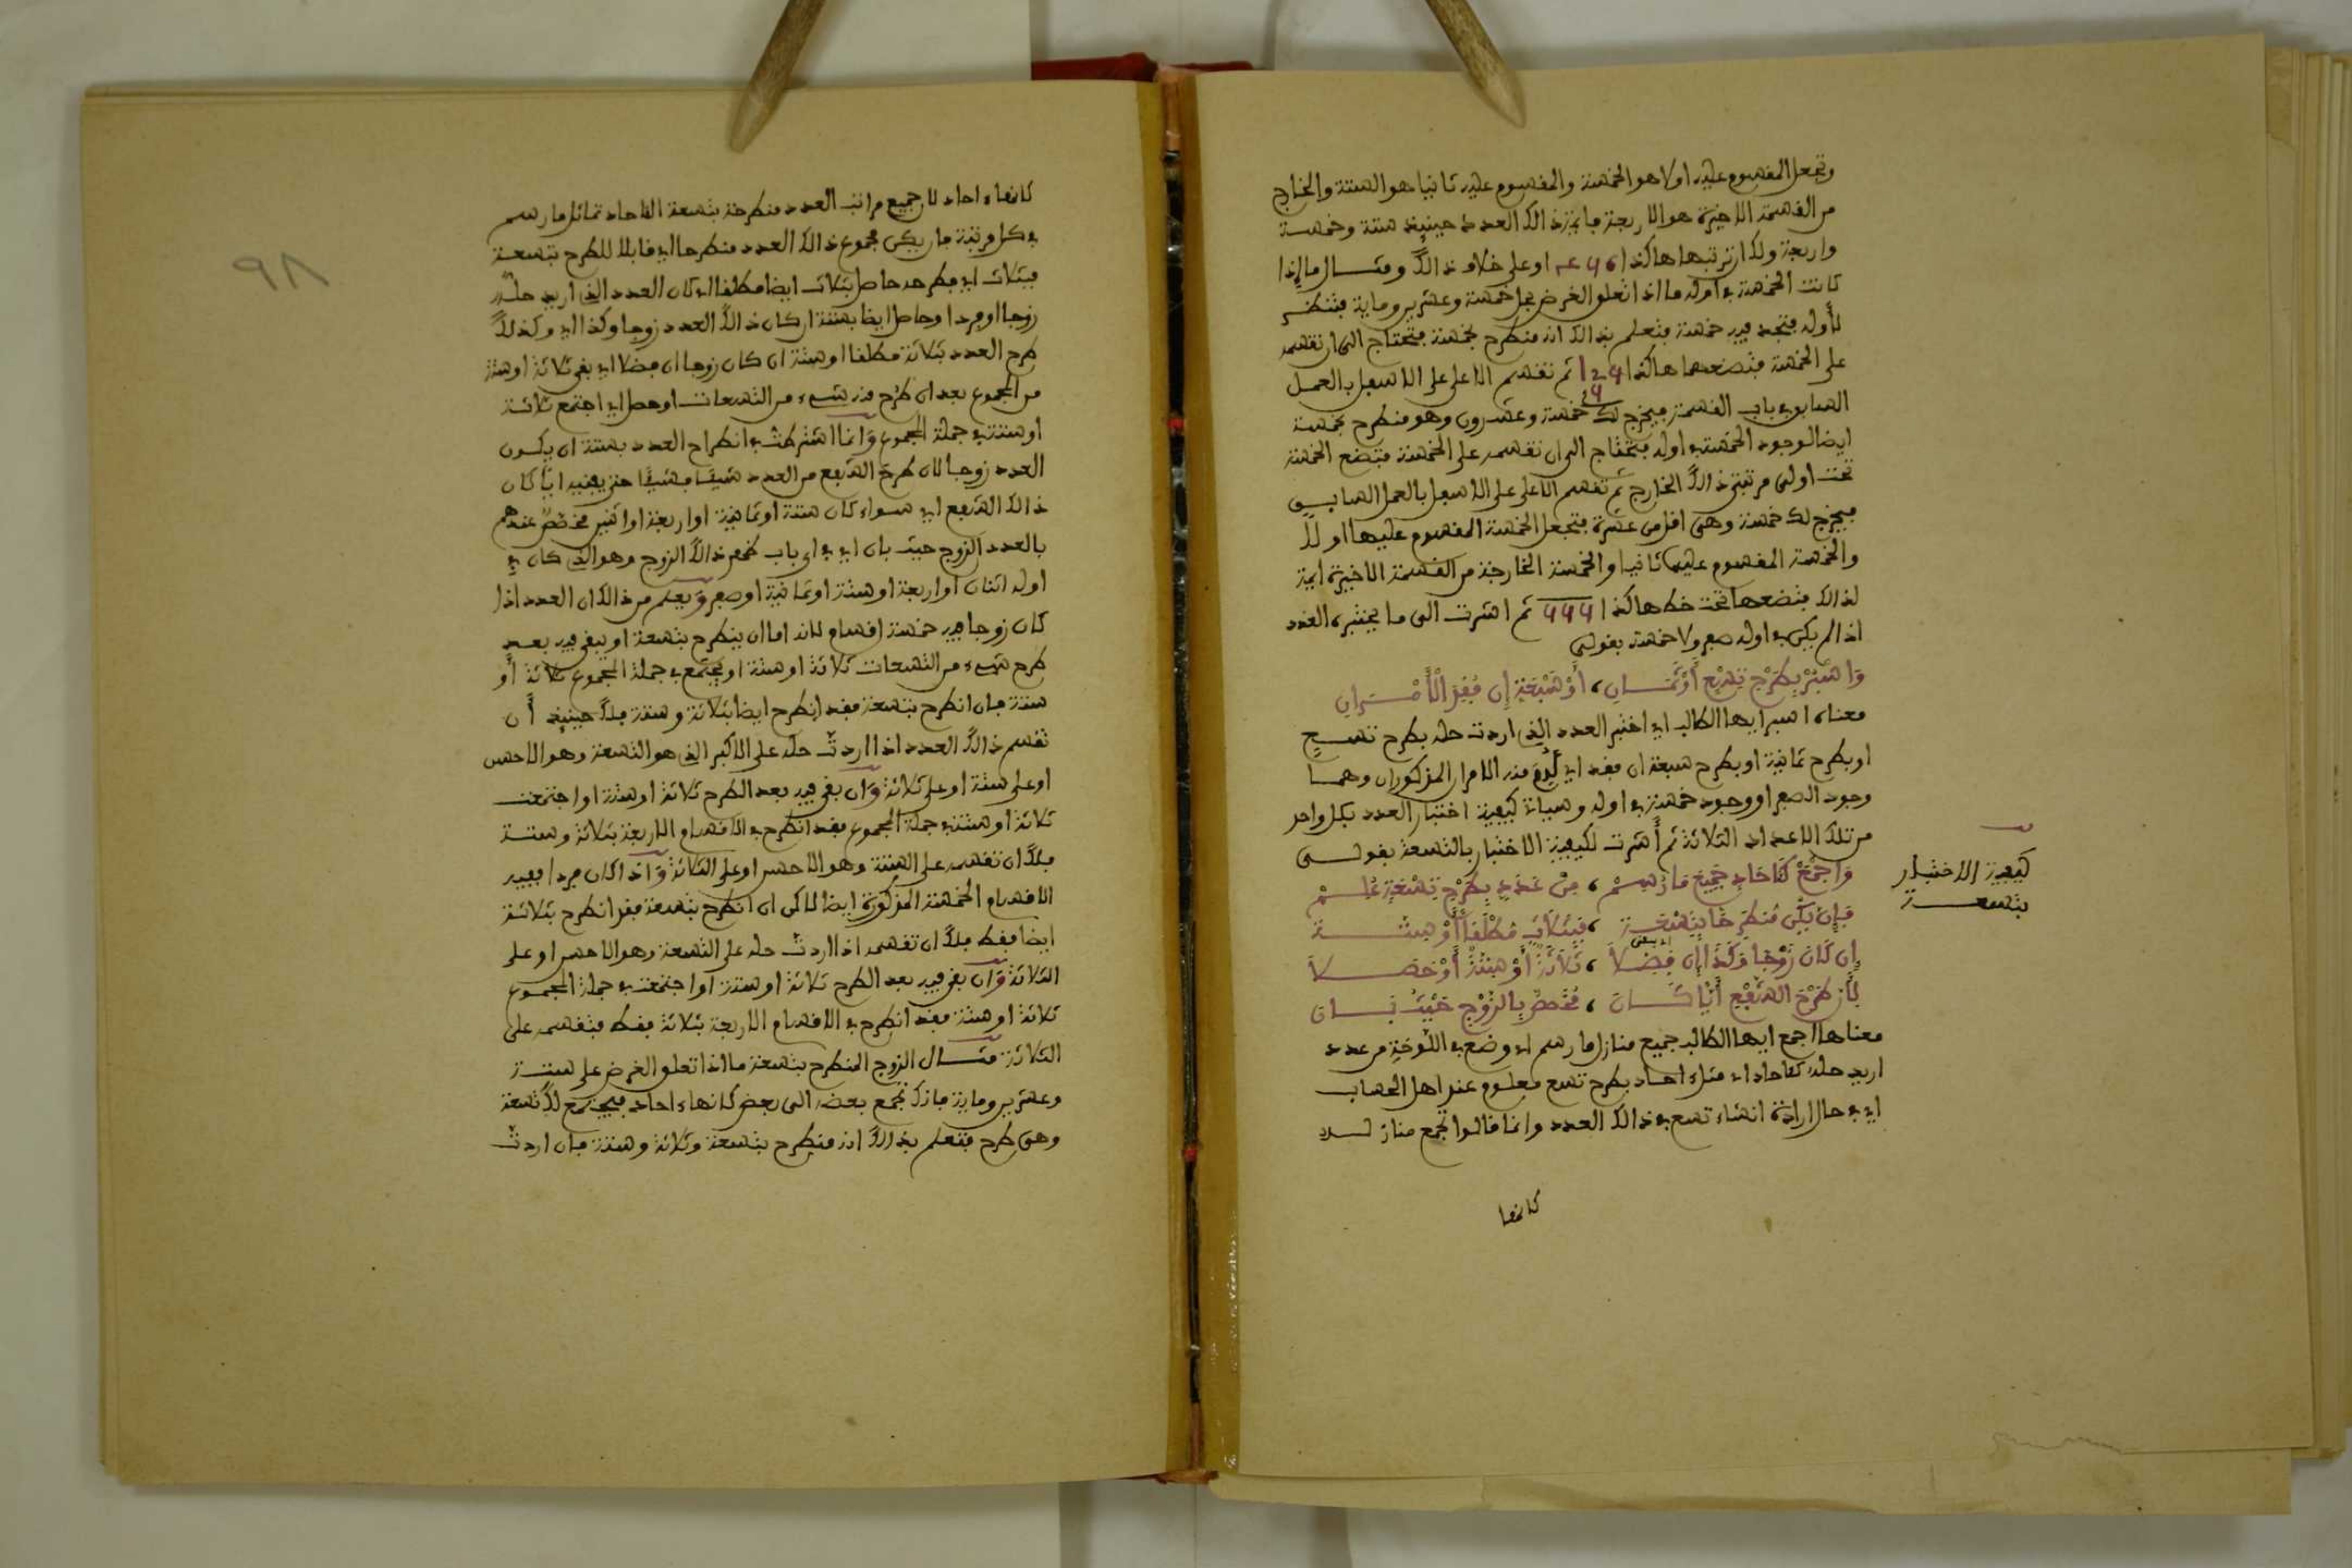 وتجعل المقسوم عليه اولا هو الخمسة والمقسوم عليه ثانيا هو الستة والخارج
من القسمة الاخيرة هو الاربعة فايمة ذالك العدد حينيذ ستة وخمسة
واربعة ولك ان ترتبها هاكذا او على خلاف ذالك ومثال ما اذا
كانت الخمسة في اوله ما اذا تعلق الغرض بحل خمسة وعشرين وماية فتنظر
لأوله فتجد فيه خمسة فتعلم بذالك انه منطرح بخمسة فتحتاج الى ان تقسمه
على الخمسة فتضعهما هاكذا ثم تقسم الاعلى على الاسفل بالعمل
السابق في باب القسمة فيخرج لك خمسة وعشرون وهو منطرح بخمسة
ايضا لوجود الخمسة في اوله فتحتاج الى ان تقسمه على الخمسة فتضع الخمسة
تحت اولى مرتبتي ذالك الخارج ثم تقسم الاعلى على الاسفل بالعمل السابق
فيخرج لك خمسة وهي اقل من عشرة فتجعل الخمسة المقسوم عليها اولا
والخمسة المقسوم عليها ثانيا والخمسة الخارجة من القسمة الاخيرة ايمة
لذالك فتضعها تحت خط هاكذا ثم اشرت الى ما يختبر به العدد
اذا لم يكن في اوله صفر ولا خمسة بقولي
وَاسْبُرْ بِطَرْحِ تِسْعٍ أَوْ ثَمَــانِ، أَوْ سَبْعَةٍ إِن فُقِدَ الْأَمْـــرَانِ
معناه اسبر ايها الطالب اي اختبر العدد الذي اردت حله بطرح تسع
او بطرح ثمانية او بطرح سبعة ان فقد اي لم يوجد منه الامران المذكوران وهما
وجود الصفر او وجود خمسة في اوله وسياتي كيفية اختبار العدد بكل واحد
من تلك الاعداد الثلاثة ثم أشرت لكيفية الاختبار بالتسعة بقولــي
كيفية الاختبار
بتسعــة
وَاجْمَعْ كَآحَادٍ جَمِيعَ مَا رُسِمْ، مِنْ عَدَدٍ بِطَرْحِ تِسْعَةٍ عُلِــمْ
فَإِنْ يَكُن مُنطَرِحًا بِتِسْعَــةِ، فَبِثَلَاثٍ مُطْلَقًا أَوْ سِتَّـــةِ
إِن كَانَ زَوْجًا وَكَذَا إِن فَضَلَا، ثَلَاثَةٌ أَوْ سِتَّةٌ أَوْ حَصَــلَا
اي بقى
لِأَنَّ طَرْحَ الشَّفْعِ أَيًّا كَـــانَ، مُخَصَّصٌ بِالزَّوْجِ حَيْثُ بَــانَ
معناها اجمع ايها الطالب جميع منازل ما رسم اي وضع في اللوحة من عدد
اريد حله كآحاد اي مثل احاد بطرح تسع معلوم عند اهل الحساب
اي في حال ارادة انشاء تسع في ذالك العدد وانما قالوا تجمع منازلــه
كانها
٩٨
كانهاء احاد لان جميع مراتب العدد منطرحة بتسعة الا احاد تماثل ما رسم
في كل مرتبة فان يكن مجموع ذالك العدد منطرحا اي قابلا للطرح بتسعة
فبثلاث اي فطرحه حاصل بثلاث ايضا مطلقا اي كان العدد الذي اريد حله
زوجا او فردا وحاصل ايضا بستة ان كان ذالك العدد زوجا وكذا اي وكذلك
طرح العدد بثلاثة مطلقا او ستة ان كان زوجا ان فضلا اي بقى ثلاثة او ستة
من المجموع بعد ان طرح منه شيء من التسعات او حصل اي اجتمع ثلاثــة
او ستة في جملة المجموع وانما اشترطت في انطراح العدد بستة ان يكــون
العدد زوجا لان طرح الشفع من العدد شيئا فشيئا حتى يفنيه ايًّا كان
ذالك الشفع اي سواء كان ستة او ثمانية او اربعة او اثنين مخصص عندهم
بالعدد الزوج حيث بان اي في اي باب ظهر ذالك الزوج وهو الذي كان في
اوله اثنان او اربعة او ستة او ثمانية او صفر ويعلم من ذالك ان العدد اذا
كان زوجا فيه خمسة اقسام لانه اما ان ينطرح بتسعة او يبقى فيه بعــد
طرح شيء من التسعات ثلاثة او ستة او يجتمع في جملة المجموع ثلاثة أو
ستة فان انطرح بتسعة فقد انطرح ايضا بثلاثة وستة فلك حينيذ أن
تقسم ذالك العدد اذا اردت حله على الاكبر الذي هو التسعة وهو الاحسن
او على ستة او على ثلاثة وان بقى فيه بعد الطرح ثلاثة او ستة او اجتمعت
ثلاثة او ستة في جملة المجموع فقد انطرح في الاقسام الاربعة بثلاثة وستــة
فلك ان تقسمه على الستة وهو الاحسن او على الثلاثة واذا كان فردا ففيه
الاقسام الخمسة المذكورة ايضا لاكن ان انطرح بتسعة فقد انطرح بثلاثــة
ايضا فقط فلك ان تقسمه اذا اردت حله على التسعة وهو الاحسن او على
الثلاثة وان بقى فيه بعد الطرح ثلاثة او ستة او اجتمعت في جملة المجمــوع
ثلاثة او ستة فقد انطرح في الاقسام الاربعة بثلاثة فقط فتقسمه على
الثلاثة مثــال الزوج المنطرح بتسعة ما اذا تعلق الغرض على ستــة
وعشرين وماية فانك تجمع بعضه الى بعض كانهاء احاد فيجتمع لك تسعة
وهي طرح فتعلم بذالك انه منطرح بتسعة وثلاثة وستة فان اردت